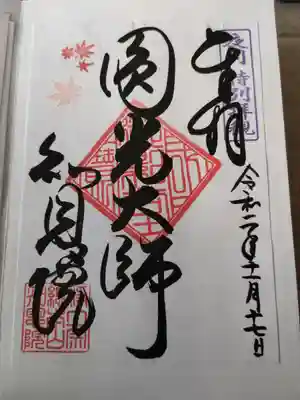 夜間特別拝観
奉拝
令和二年十一月十七日
圓光大師
知恩院